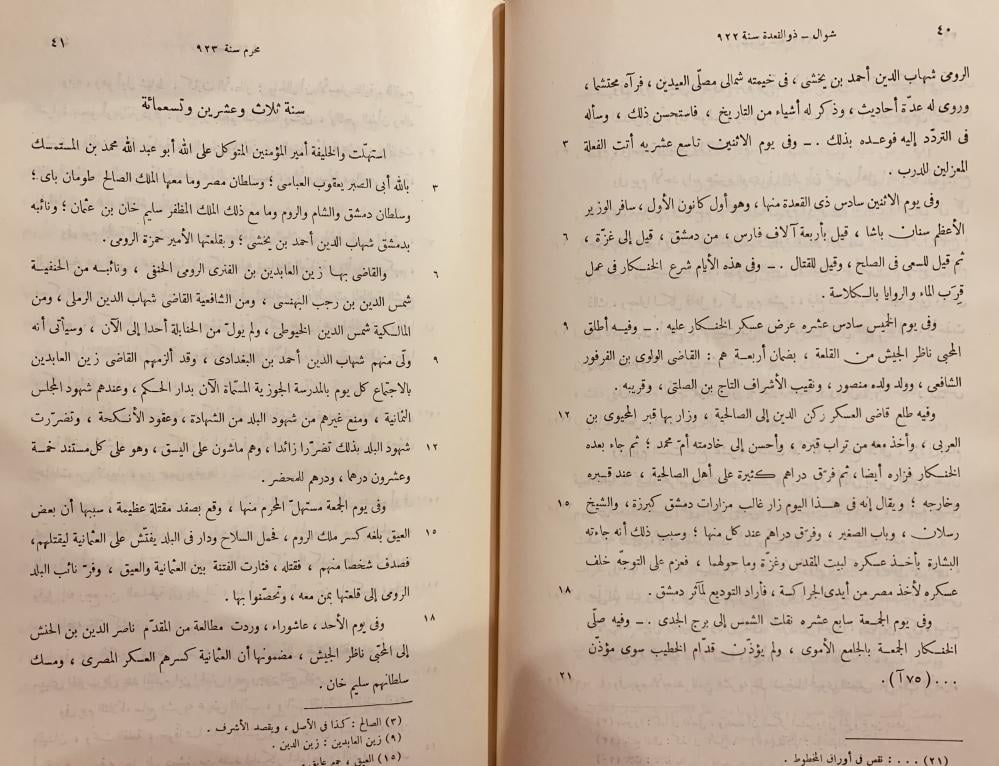 ٤٠
شوال – ذو القعدة سنة ٩٢٢
الرومى شهاب الدين أحمد بن يخشى ، فى خيمته شمالى مصلّى العيدين ، فرآه محتشما ،
وروى له عدّة أحاديث ، وذكر له أشياء من التاريخ ، فاستحسن ذلك ، وسأله
فى التردّد إليه فوعده بذلك . ــ وفى يوم الاثنين تاسع عشريه أتت الفعلة ٣
المعزلين للدرب .
وفى يوم الاثنين سادس ذى القعدة منها ، وهو أول كانون الأول ، سافر الوزير
الأعظم سنان باشا ، قيل بأربعة آلاف فارس ، من دمشق ، قيل إلى غزّة ، ٦
ثم قيل للسعى فى الصلح ، وقيل للقتال . ــ وفى هذه الأيام شرع الخنكار فى عمل
قِرَب الماء والروايا بالسكلاسة .
وفى يوم الخميس سادس عشره عرض عسكر الخنكار عليه . ــ وفيه أطلق ٩
المحبى ناظر الجيش من القلعة ، بضمان أربعة هم : القاضى الولوى بن الفرفور
الشافعى ، وولد ولده منصور ، ونقيب الأشراف التاج بن الصلتى ، وقريبه .
وفيه طلع قاضى العسكر ركن الدين إلى الصالحية ، وزار بها قبر المحيوى بن ١٢
العربى ، وأخذ معه من تراب قبره ، وأحسن إلى خادمته أمّ محمد ؛ ثم جاء بعده
الخنكار فزاره أيضا ، ثم فرّق دراهم كثيرة على أهل الصالحية ، عند قبره
وخارجه ؛ ويقال إنه فى هذا اليوم زار غالب مزارات دمشق كبرزة ، والشيخ ١٥
رسلان ، وباب الصغير ، وفرّق دراهم عند كل منها ؛ وسبب ذلك أنه جاءته
البشارة بأخذ عسكره لبيت المقدس وغزّة وما حولهما ، فعزم على التوجّه خلف
عسكره لأخذ مصر من أيدى الجراكسة ، فأراد التوديع لمآثر دمشق . ١٨
وفى يوم الجمعة سابع عشره نقلت الشمس إلى برج الجدى . ــ وفيه صلّى
الخنكار الجمعة بالجامع الأموى ، ولم يؤذّن قدّام الخطيب سوى مؤذّن
. . . (٧٥ آ) . ٢١
(٢١) . . . : نقص فى أوراق المخطوط .
٤١
محرم سنة ٩٢٣
سنة ثلاث وعشرين وتسعمائة
استهلّت والخليفة أمير المؤمنين المتوكل على الله أبو عبد الله محمد بن المستمسك
بالله أبى الصبر يعقوب العباسى ؛ وسلطان مصر وما معها الملك الصالح طومان باى ؛ ٣
وسلطان دمشق والشام والروم وما مع ذلك الملك المظفر سليم خان بن عثمان ؛ ونائبه
بدمشق شهاب الدين أحمد بن يخشى ؛ وبقلعتها الأمير حمزة الرومى .
والقاضى بها زين العابدين بن الفنرى الرومى الحنفى ، ونائبه من الحنفية ٦
شمس الدين بن رجب البهنسى ، ومن الشافعية القاضى شهاب الدين الرملى ، ومن
المالكية شمس الدين الخيوطى ، ولم يولّ من الحنابلة أحدا إلى الآن ، وسيأتى أنه
ولّى منهم شهاب الدين أحمد بن البغدادى ، وقد ألزمهم القاضى زين العابدين ٩
بالاجتماع كل يوم بالمدرسة الجوزية المسمّاة الآن بدار الحكم ، وعندهم شهود المجلس
الثمانية ، ومنع غيرهم من شهود البلد من الشهادة ، وعقود الأنكحة ، وتضرّرت
شهود البلد بذلك تضرّرا زائدا ، وهم ماشون على اليسق ، وهو على كل مستند خمسة ١٢
وعشرون درهما ، ودرهم للمحضر .
وفى يوم الجمعة مستهلّ المحرم منها ، وقع بصفد مقتلة عظيمة ، سببها أن بعض
العيق بلغه كسر ملك الروم ، فحمل السلاح ودار فى البلد يفتّش على العثمانية ليقتلهم ، ١٥
فصدف شخصا منهم ، فقتله ، فثارت الفتنة بين العثمانية والعيق ، وفرّ نائب البلد
الرومى إلى قلعتها بمن معه ، وتحصّنوا بها .
وفى يوم الأحد ، عاشوراء ، وردت مطالعة من المقدّم ناصر الدين بن الحنش ١٨
إلى المحبّى ناظر الجيش ، مضمونها أن العثمانية كسرهم العسكر المصرى ، ومسك
سلطانهم سليم خان .
(٣) الصالح : كذا فى الأصل ، ويقصد الأشرف .
(٩) زين العابدين : زين الدين .
(١٥) العيق ، جمع عايق .